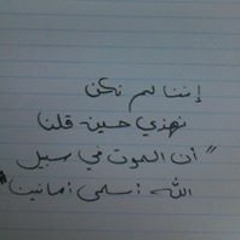 إننا لم نكن
نهذي حينه قلنا
"أن الموت في سبيل
الله أسمى أمانينا"